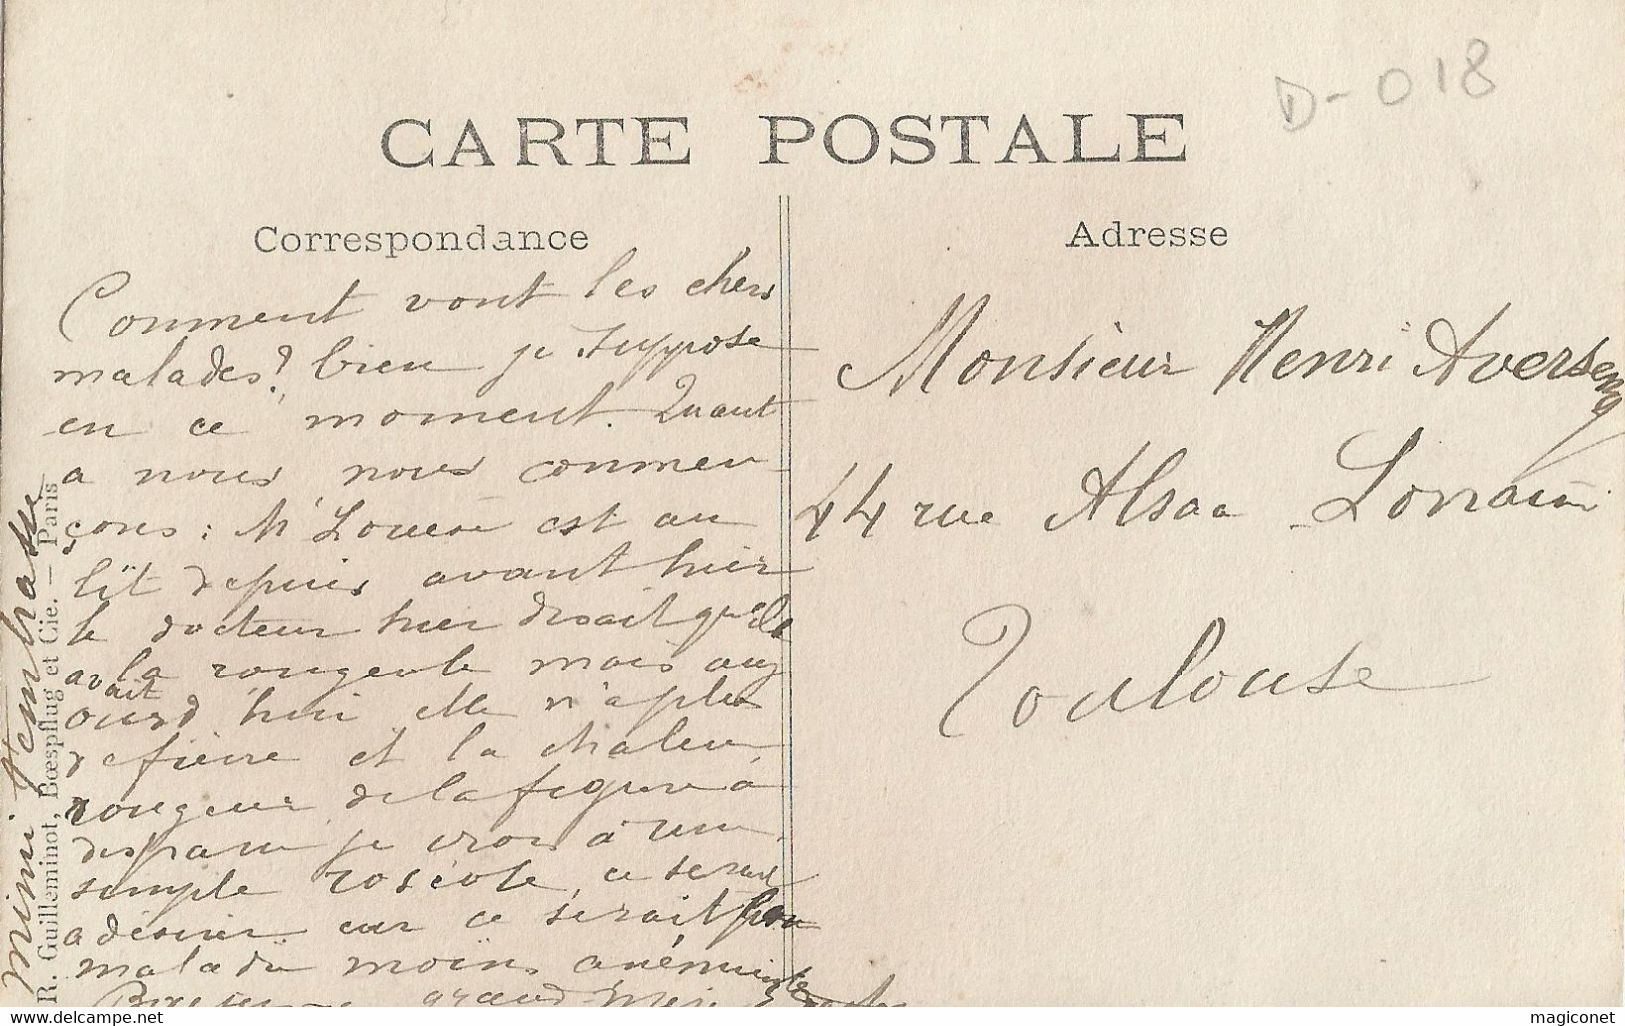 D-018
CARTE POSTALE
Correspondance
Adresse
Comment vont les chers
malades? bien je suppose
en ce moment. Quant
a nous nous commen
çons: M Louise est au
lit depuis avant hier
le docteur hier disait qu'elle
avait la rougeole mais auj
ourd hui elle n'a plus
de fièvre et la chaleur
rougeur de la figure à
disparu je crois à une
simple roséole, ce serait
a désirer car ce serait
malade moins anémiante
grand
Monsieur Henri Averseng
44 rue Alsace-Lorraine
Toulouse
mimi t'embrasse
R. Guilleminot, Bœspflug et Cie. — Paris
delcampe.net
magiconet